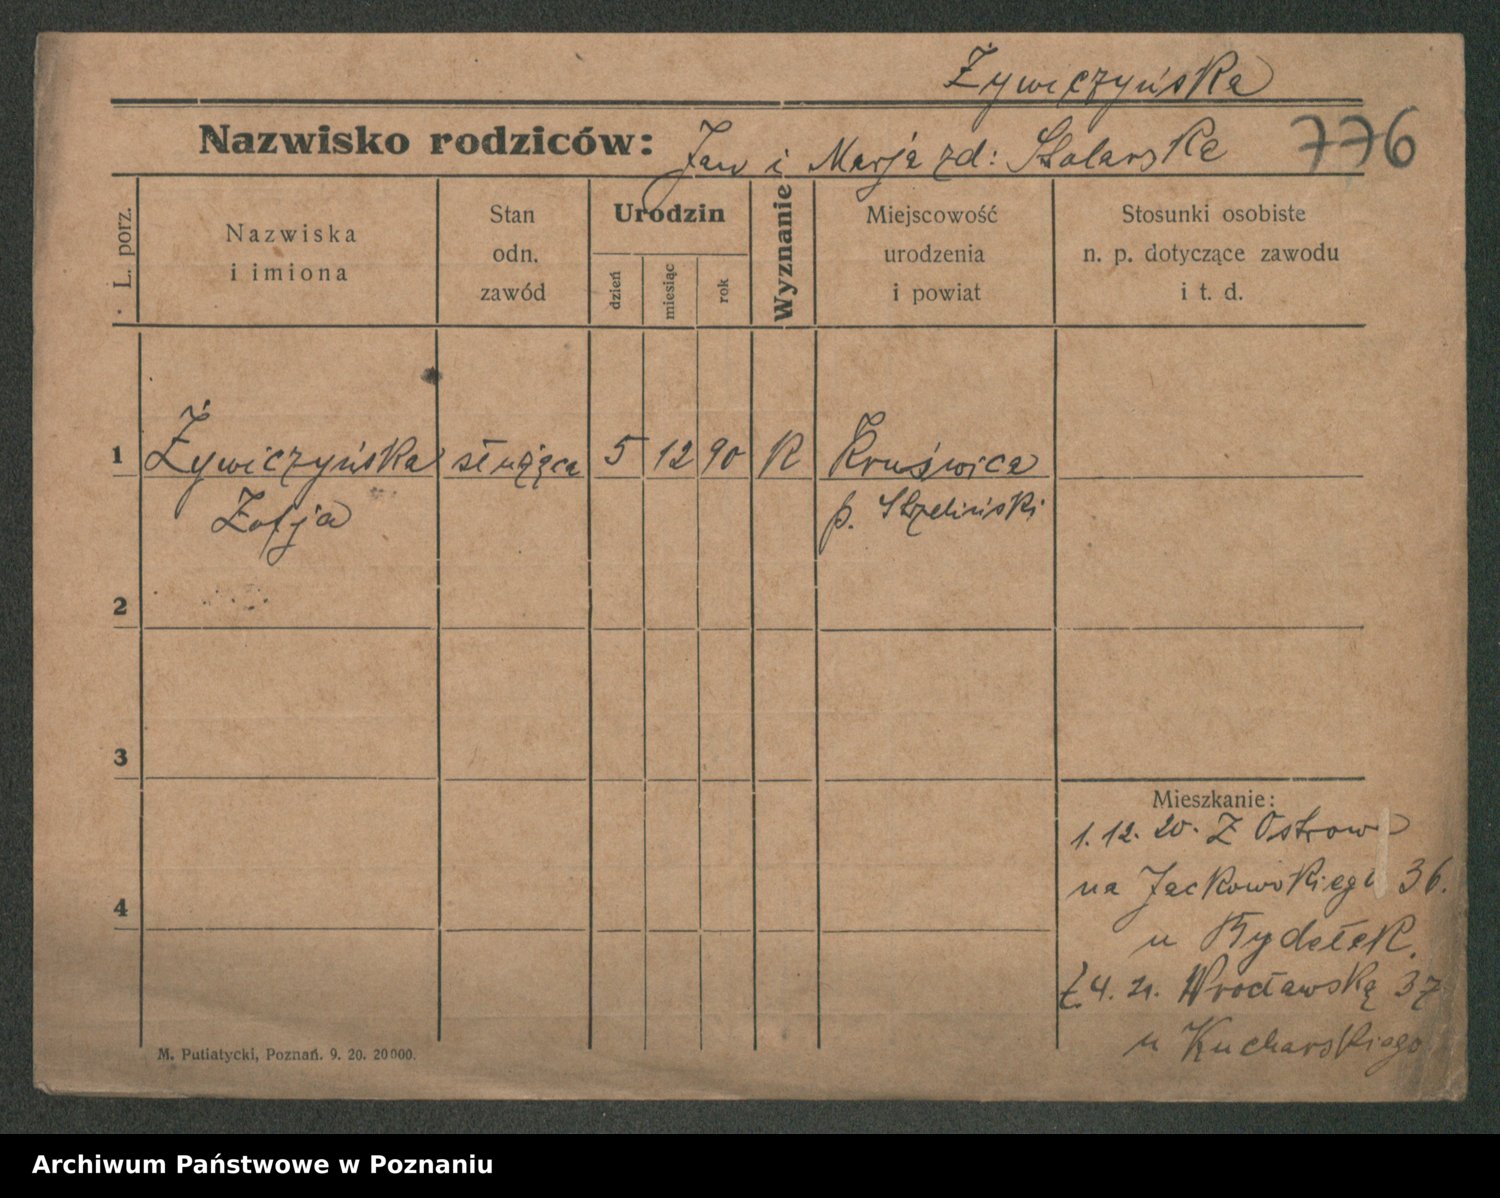 Żywiczyńska
Nazwisko rodziców: Jan i Marja zd: Stolarska
776
L. porz.
Nazwiska
i imiona
Stan
odn.
zawód
Urodzin
dzień
miesiąc
rok
Wyznanie
Miejscowość
urodzenia
i powiat
Stosunki osobiste
n. p. dotyczące zawodu
i t. d.
1 Żywiczyńska służąca 5 12 90 K Kruświca
Zofja p. Strzeliński
2
3
4
Mieszkanie:
1. 12. 20. Z Ostrowa
na Jackowskiego 36.
u
4. 21. Wrocławską 37
u Kucharskiego
M. Putiatycki, Poznań. 9. 20. 20000.
Archiwum Państwowe w Poznaniu